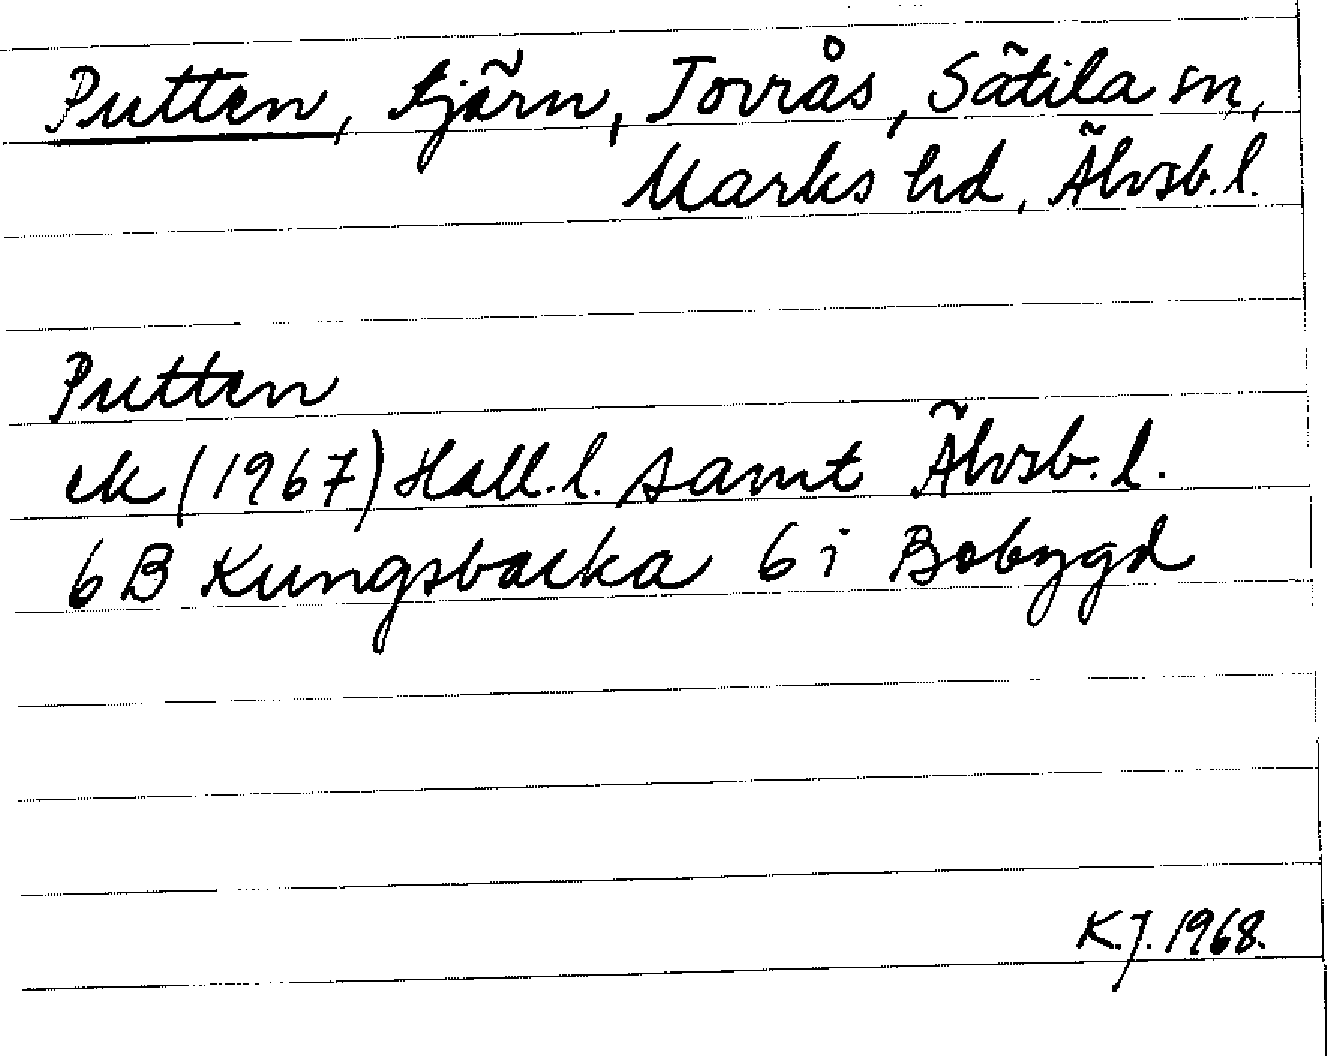 Putten, tjärn, Torrås, Sätila sn,
Marks hd, Älvsb. l.
Putten
ek (1967) Hall. l. samt Älvsb. l.
6 B Kungsbacka 6 i Bobygd
K.J. 1968.